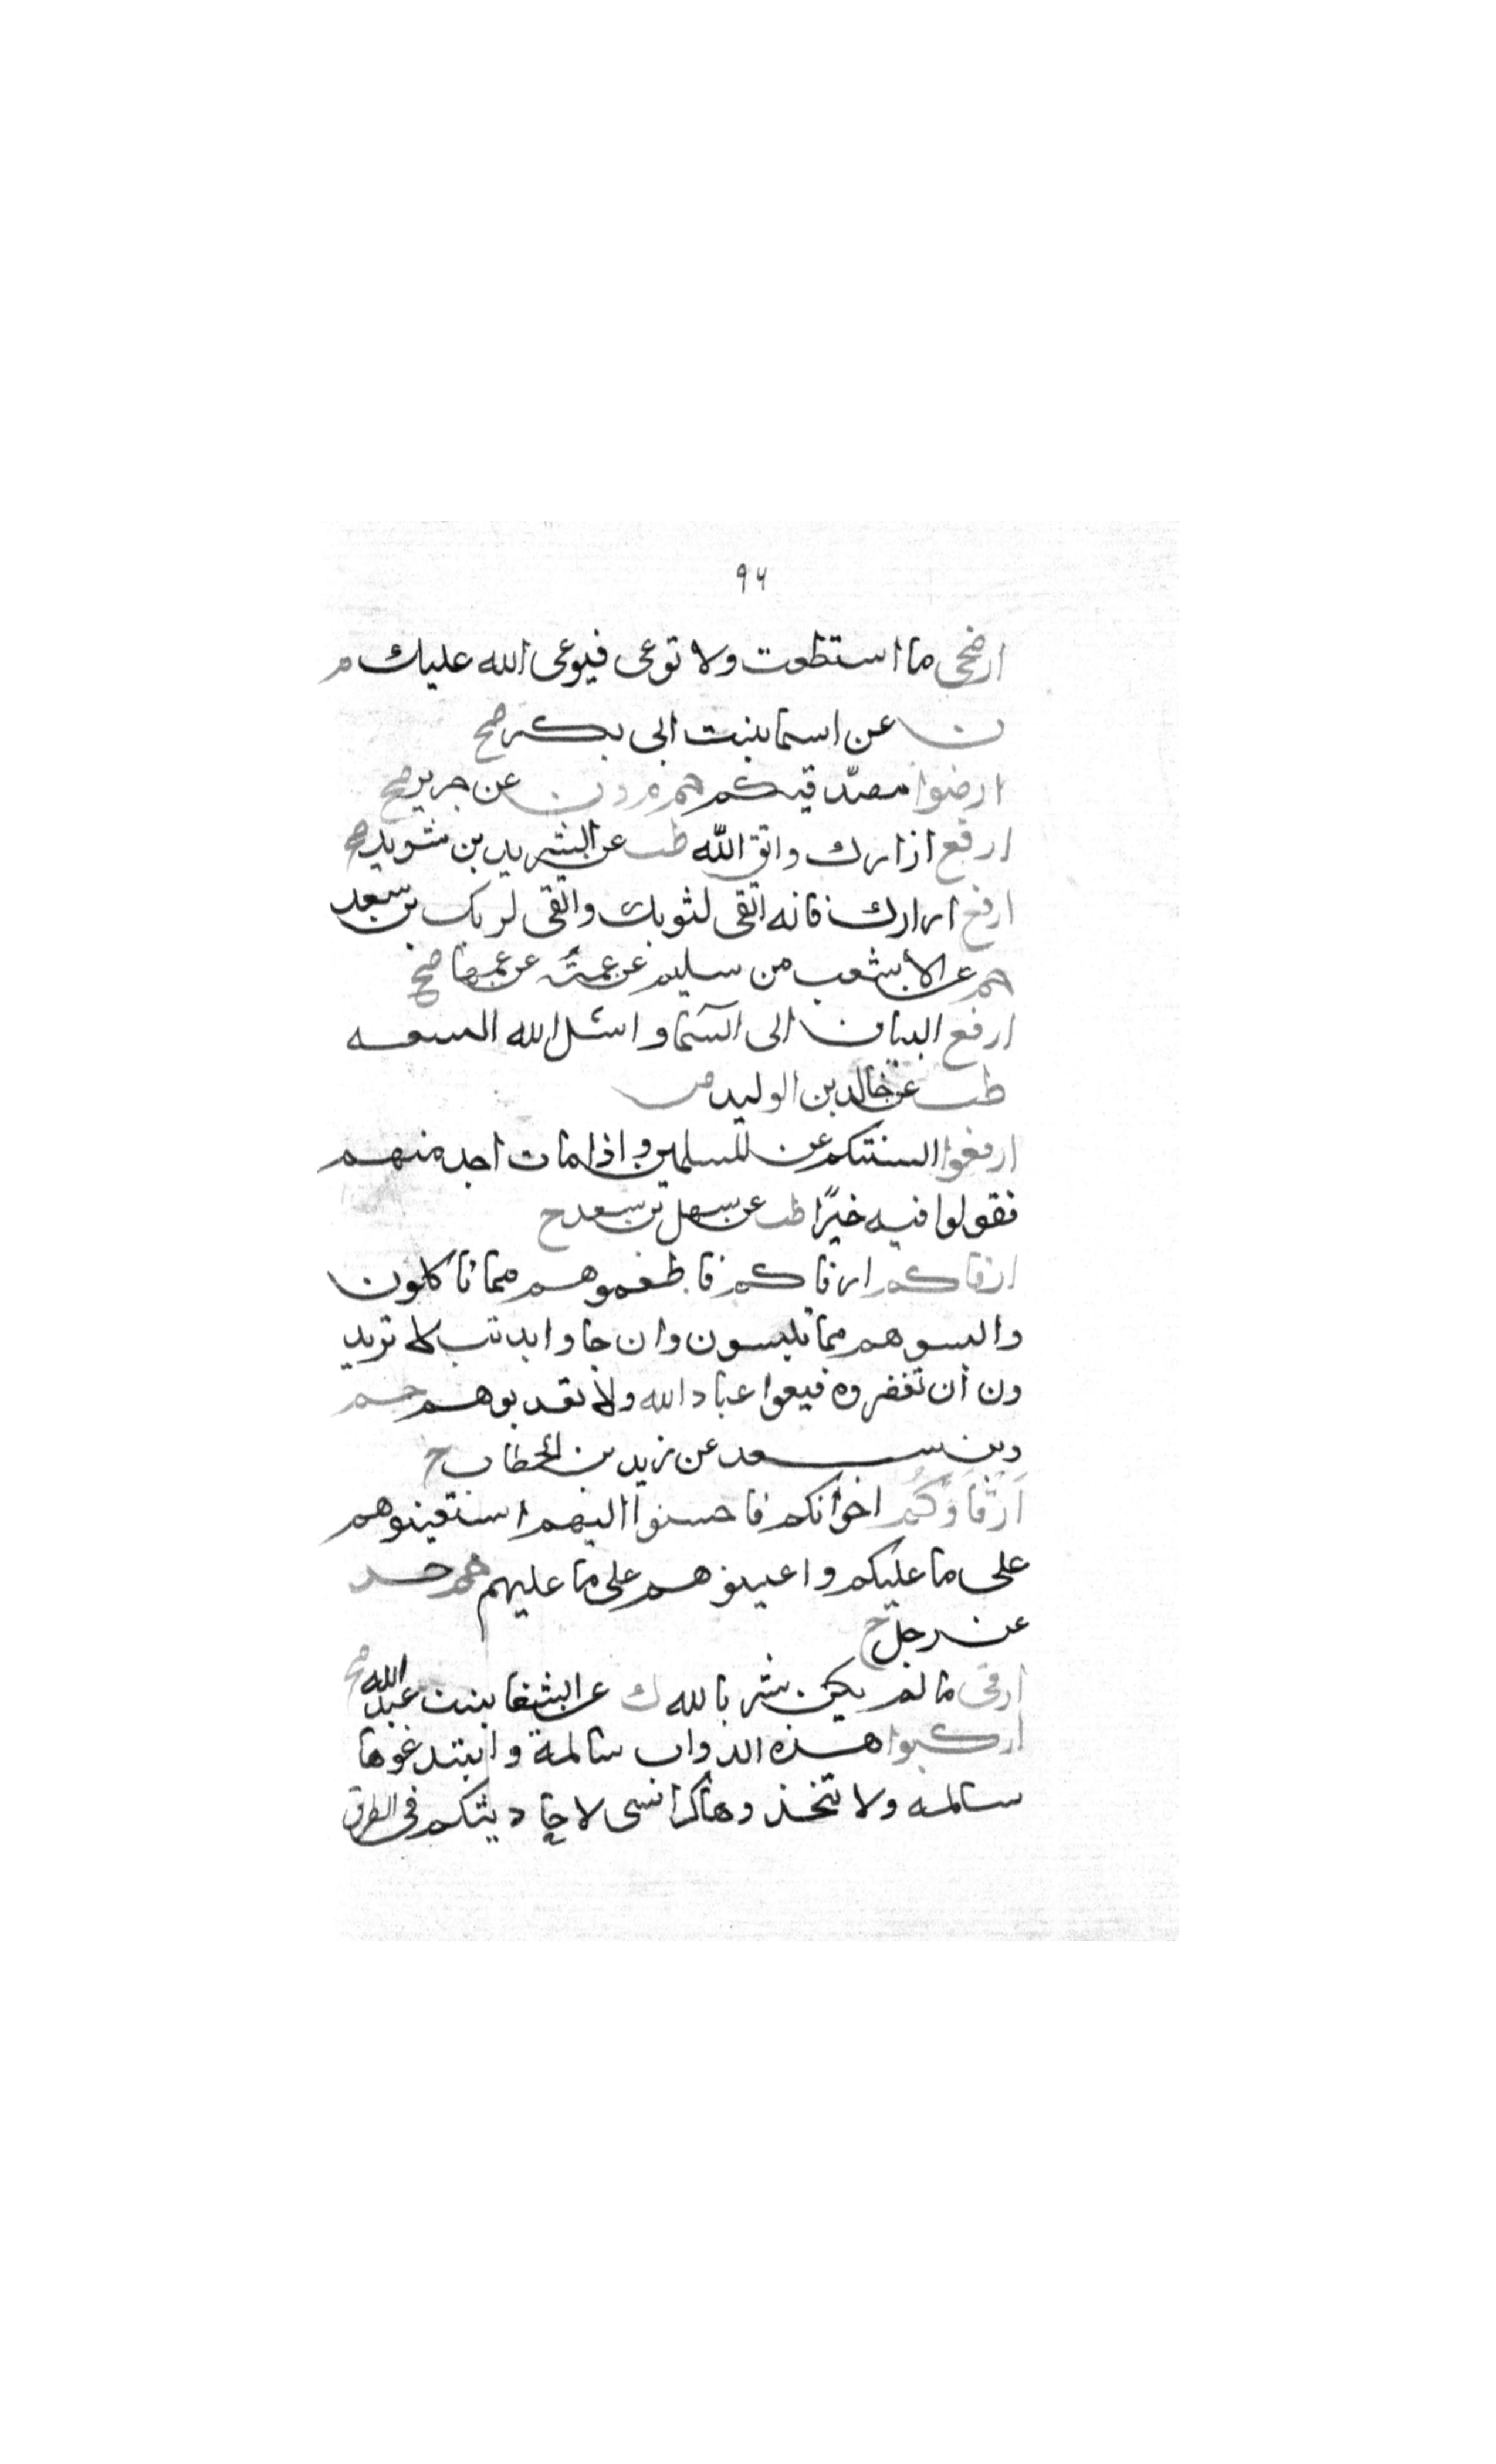 ٩٦
ارضخى ما استطعت ولا توعى فيوعى الله عليك م
ن عن اسما بنت ابى بكر صح
ارضوا مصدّقيكم حم م د ن عن جرير صح
ارفع ازارك واتق الله طب عن الشريد بن سويد صح
ارفع ازارك فانه اتقى لثوبك واتقى لربك بن سعد
حم عن الاشعب بن سليم عن عمته عن عمها صح
ارفع البنيان الى السّما واسئل الله السعه
طب عن خالد بن الوليد
ارفعوا السنتكم عن المسلمين واذا مات احد منهم
فقولوا فيه خيرًا طب عن سهل بن سعد ح
ارقاكم ارقاكم فاطعموهم مما تاكلون
والبسوهم مما تلبسون وان جاوا بدنب لا تريد
ون ان تغفروه فبيعوا عباد الله ولا تعدبوهم حم
وبن سعد عن زيد بن الخطاب ح
ارقاوكم اخوانكم فاحسنوا اليهم استعينوهم
على ما عليكم واعينوهم على ما عليهم حم خد
عن رجل ح
ارقى ما لم يكن شر بالله ك عن الشفا بنت عبد الله صح
اركبوا هذه الدواب سالمة وابتدعوها
سالمه ولا تتخذوها كراسى لاحاديثكم فى الطرق